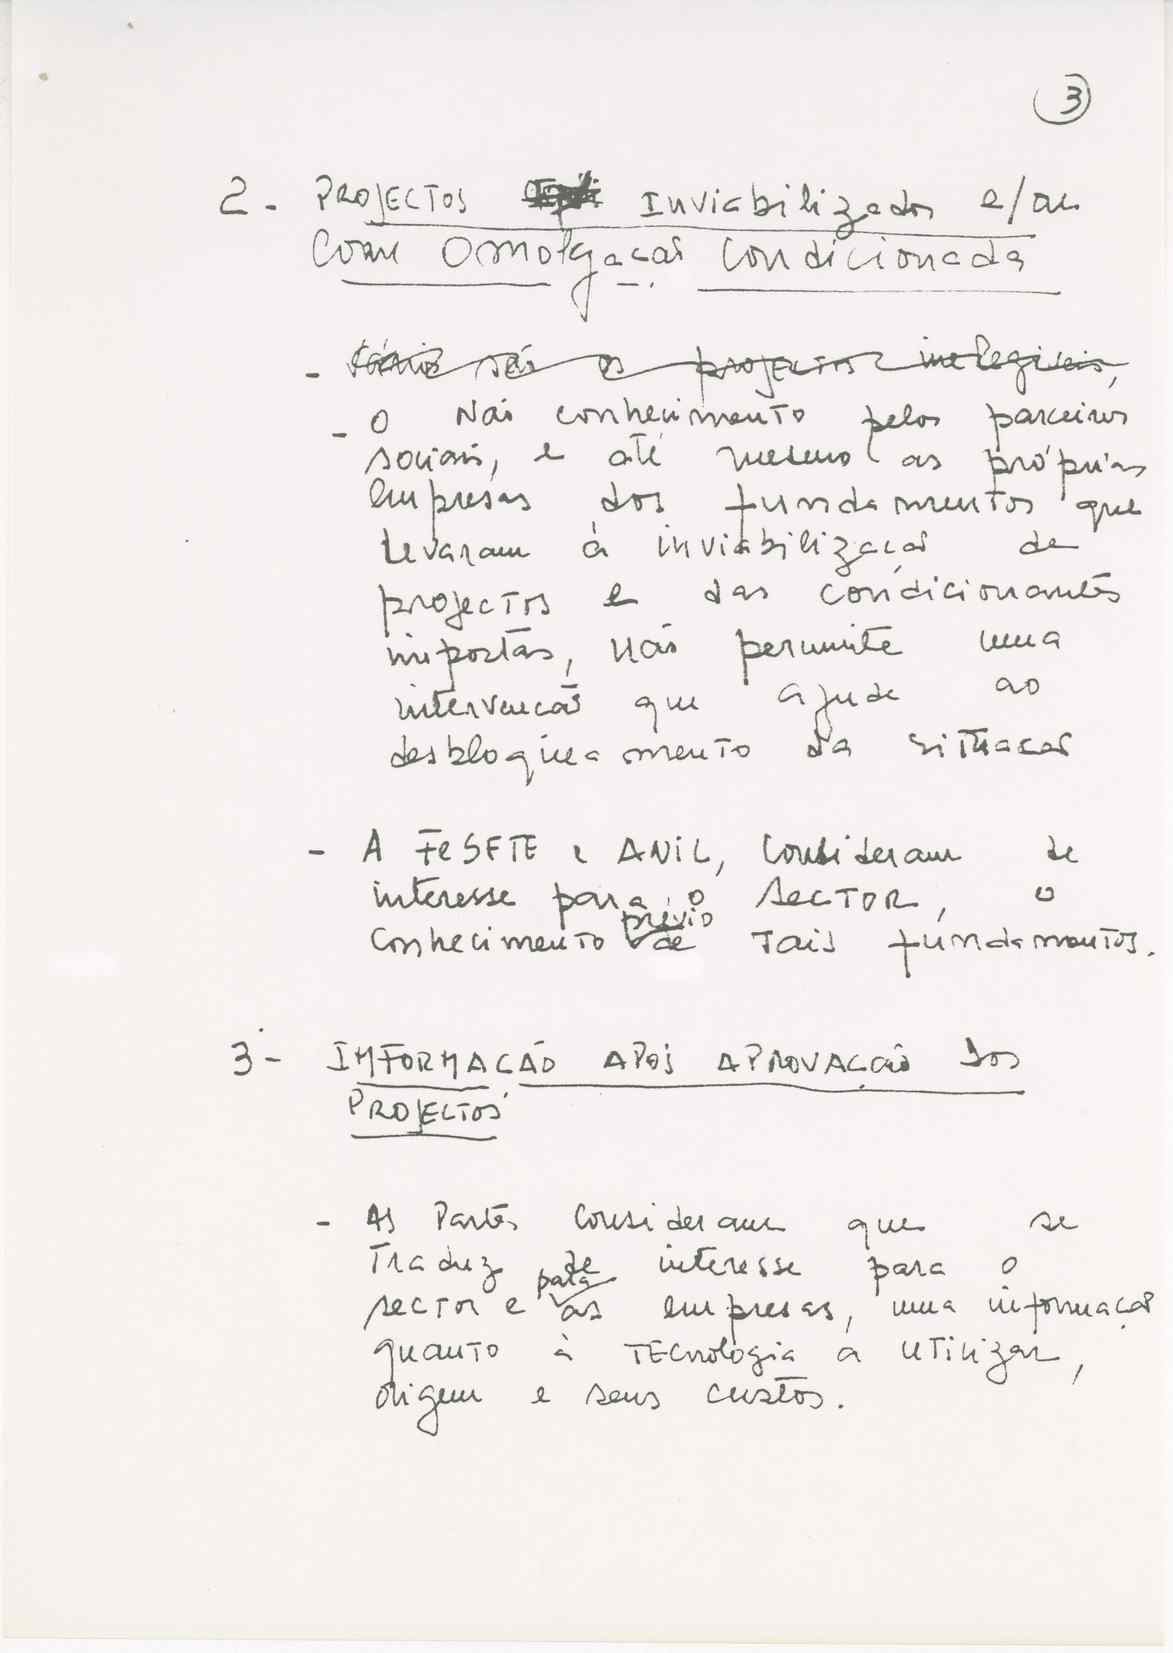 3
2- PROJECTOS Inviabilizados e/ou
Com Omolgação Condicionada
- são os projectos inelegíveis,
- O não conhecimento pelos parceiros
sociais, e até mesmo as próprias
empresas dos fundamentos que
levaram à inviabilização de
projectos e das condicionantes
impostas, não permite uma
intervenção que ajude ao
desbloqueamento da situação
- A FeSETE e ANIL, consideram de
interesse para o SECTOR, o
prévio
conhecimento de tais fundamentos.
3- INFORMAÇÃO APÓS APROVAÇÃO dos
PROJECTOS
- As Partes consideram que se
traduz de interesse para o
para
sector e as empresas, uma informação
quanto à TECnologia a utilizar,
origem e seus custos.